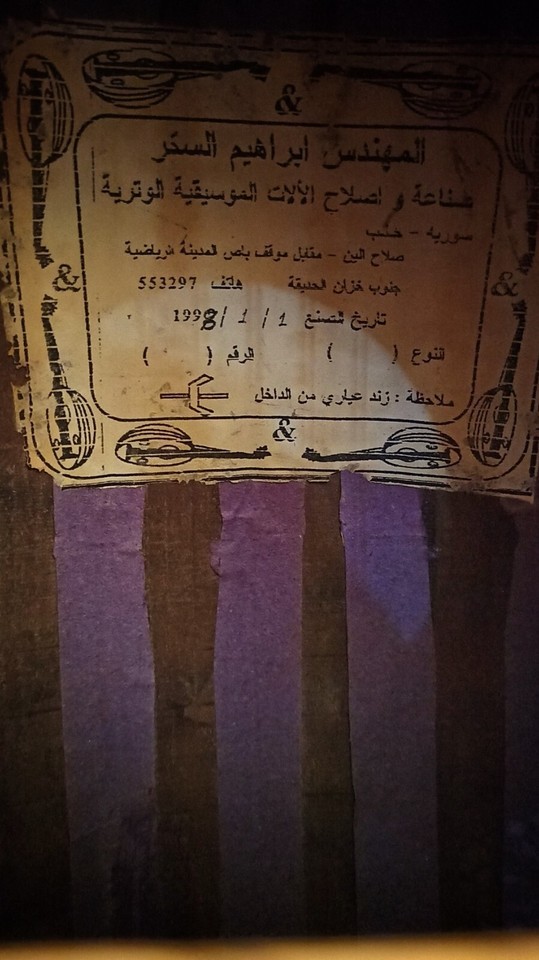 &
المهندس ابراهيم السكر
صناعة و اصلاح الألات الموسيقية الوترية
سورية - حلب
صلاح الين - مقابل موقف باص المدينة الرياضية
جنوب خزان الحديقة هاتف 553297
تاريخ الصنع 1 / 1 / 1998
النوع ( ) الرقم ( )
ملاحظة : زند عياري من الداخل
& &
&